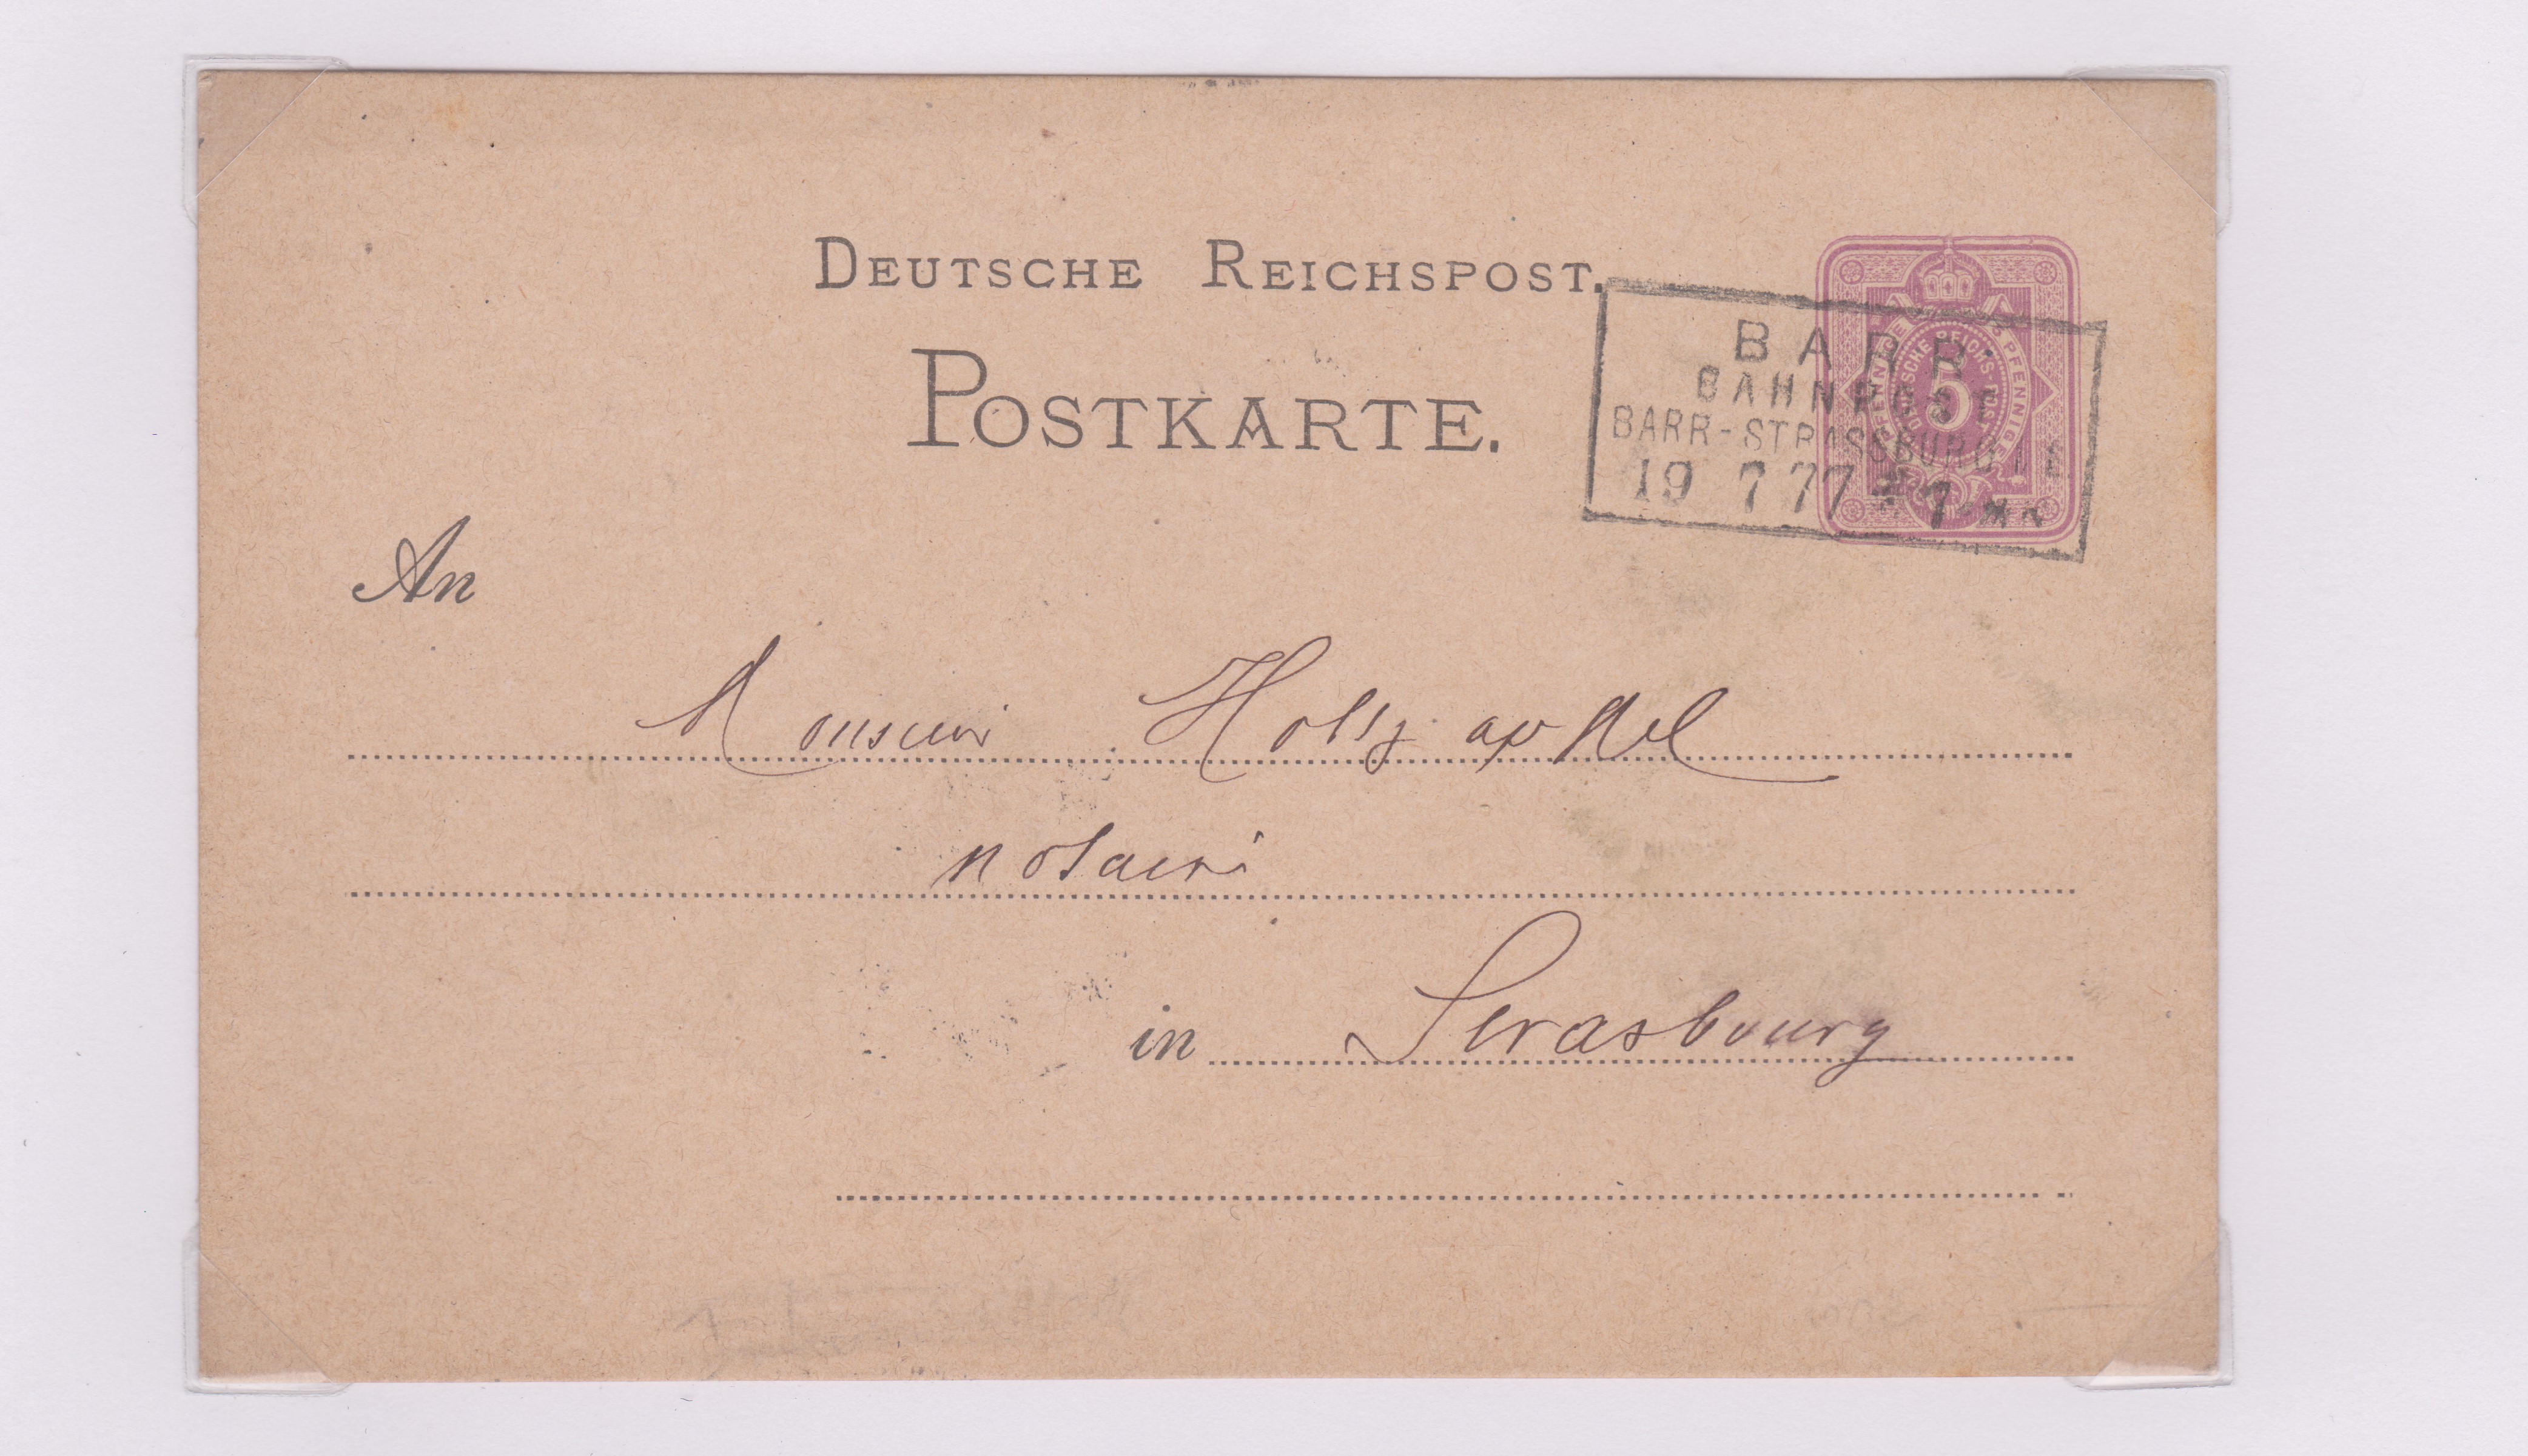 DEUTSCHE REICHSPOST.
POSTKARTE.
BARR
BAHNPOST
BARR-STRASSBURG I E
19 7 77 * 7
5 PFENNIGE
DEUTSCHE REICHS-POST
An
Monsieur Holtzapffel
notaire
in Strasbourg